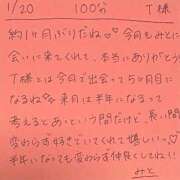 1/20 100分 T様
約1ヶ月ぶりだね♡今月もみとに
会いに来てくれて、本当にありがとう
T様とは今月で出会って5ヶ月目に
なるね♡来月は半年になるって
考えるとあっという間だけど、長い間
変わらず好きでいてくれて嬉しい♡
半年になっても変わらず仲良くしてね!!
みと